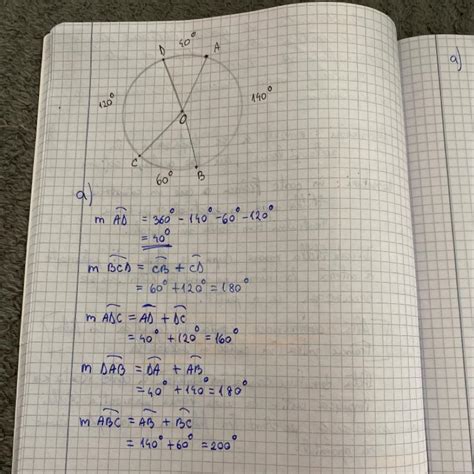 40°
D
A
120°
140°
O
C
B
60°
a)
a)
m A͡D = 360° - 140° - 60° - 120°
= 40°
m B͡CD = C͡B + C͡D
= 60° + 120° = 180°
m A͡DC = A͡D + D͡C
= 40° + 120° = 160°
m D͡AB = D͡A + A͡B
= 40° + 140° = 180°
m A͡BC = A͡B + B͡C
= 140° + 60° = 200°